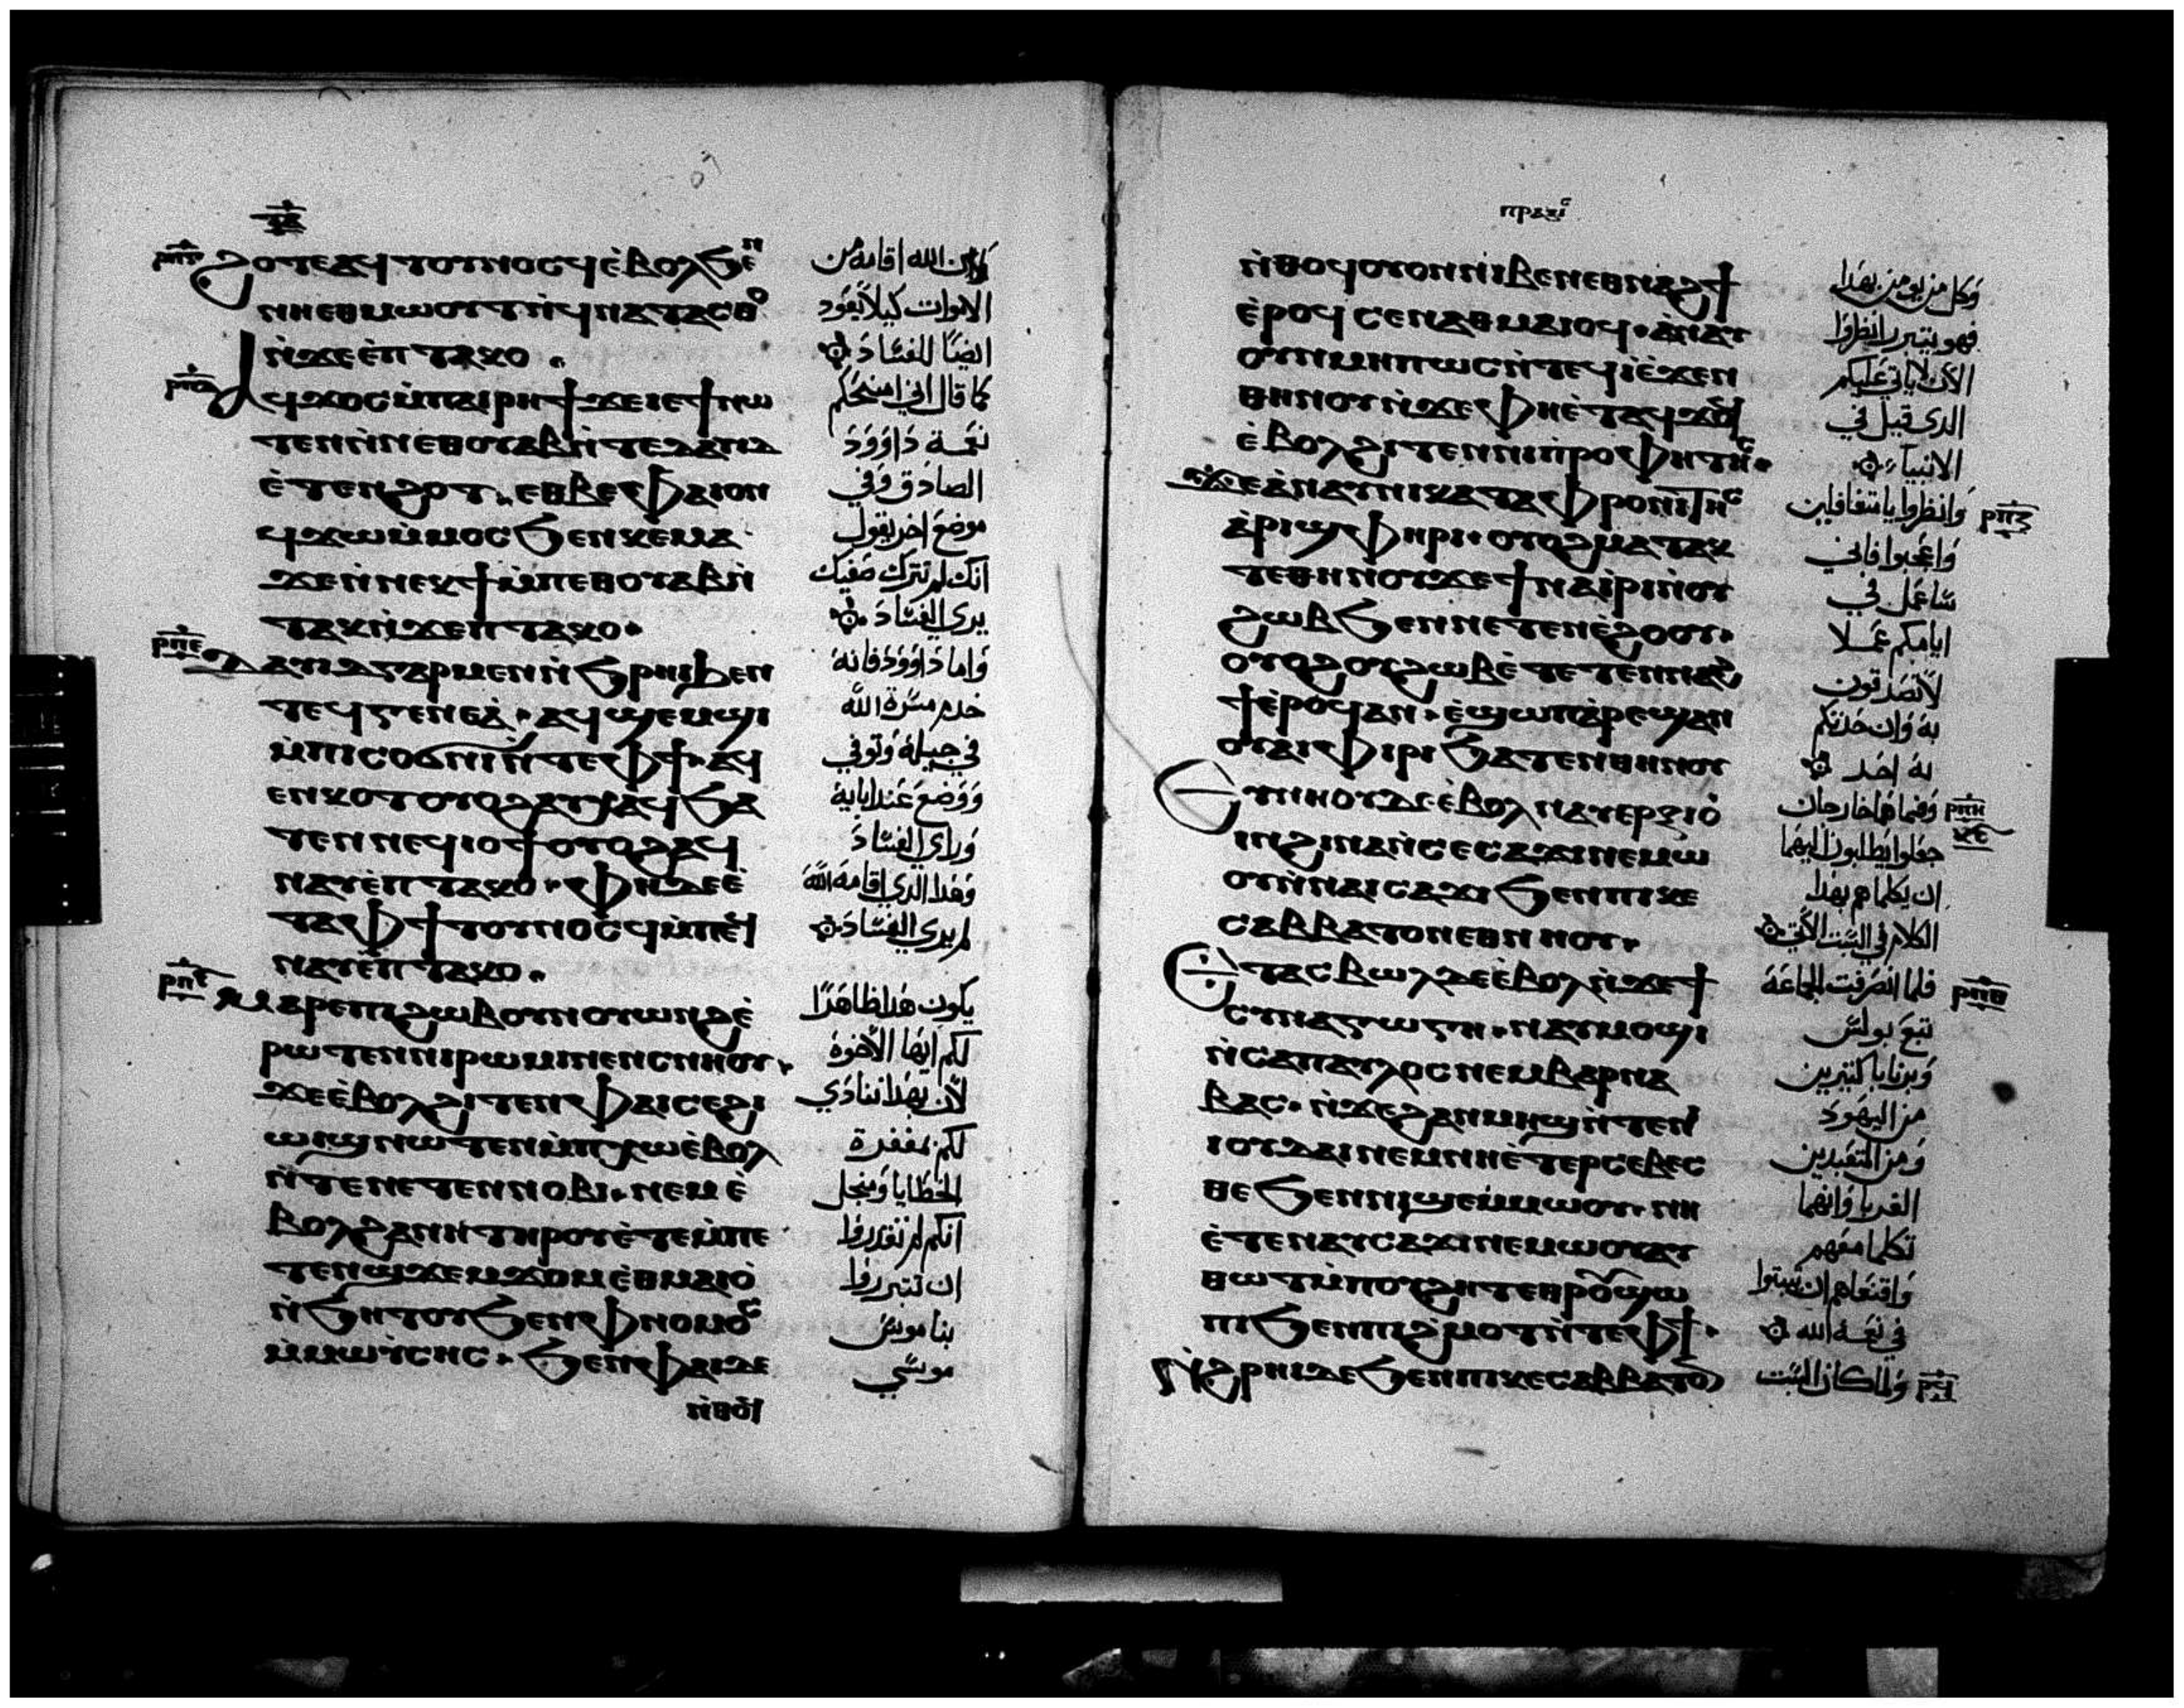 ϩⲟⲧⲉ ⲁϥⲧⲟⲩⲛⲟⲥϥ ⲉ̀ⲃⲟⲗϧⲉⲛ
ⲛⲏⲉⲑⲙⲱⲟⲩⲧ ⲛ̀ϥⲛⲁⲧⲁⲥⲑⲟ
ⲛ̀ϫⲉ ⲉ̀ⲡⲧⲁⲕⲟ
ⲁϥϫⲟⲥ ⲙ̀ⲡⲁⲓⲣⲏϯ ϫⲉ ⲉⲓⲉϯ ⲛⲱ
ⲧⲉⲛ ⲛ̀ⲛⲉⲑⲟⲩⲁⲃ ⲛ̀ⲧⲉ ⲇⲁⲩⲓⲇ
ⲉ̀ⲧⲉⲛϩⲟⲧ ⲉⲑⲃⲉⲫⲁⲓ ⲟⲛ
ϥϫⲱ ⲙ̀ⲙⲟⲥ ϧⲉⲛ ⲕⲉⲙⲁ
ϫⲉ ⲛ̀ⲛⲉⲕϯ ⲙ̀ⲡⲉⲑⲟⲩⲁⲃ ⲛ̀
ⲧⲁⲕ ⲛ̀ϫⲉⲡⲧⲁⲕⲟ
ⲇⲁⲩⲓⲇ ⲅⲁⲣ ⲙⲉⲛ ⲛ̀ϧⲣⲏⲓ ϧⲉⲛ
ⲧⲉϥⲅⲉⲛⲉⲁ̀ ⲁϥϣⲉⲙϣⲓ
ⲙ̀ⲡⲓⲥⲟϭⲛⲓ ⲛ̀ⲧⲉ ⲫϯ ⲁϥ
ⲉⲛⲕⲟⲧ ⲟⲩⲟϩ ⲁⲩⲭⲁϥ ϧⲁ
ⲧⲉⲛ ⲛⲉϥⲓⲟϯ ⲟⲩⲟϩ ⲁϥ
ⲛⲁⲩ ⲉ̀ⲡⲧⲁⲕⲟ ⲫⲏ ⲇⲉ ⲉ̀
ⲧⲁ ⲫϯ ⲧⲟⲩⲛⲟⲥϥ ⲙ̀ⲡⲉϥ
ⲛⲁⲩ ⲉ̀ⲡⲧⲁⲕⲟ
ⲙⲁⲣⲉ ⲡⲓϩⲱⲃ ⲟⲩⲛ ⲟⲩⲱⲛϩ ⲉ̀
ⲣⲱⲧⲉⲛ ⲛⲓⲣⲱⲙⲓ ⲛⲉⲛⲥⲛⲏⲟⲩ
ϫⲉ ⲉ̀ⲃⲟⲗϩⲓⲧⲉⲛ ⲫⲁⲓ ⲥⲉϩⲓ
ⲱⲓϣ ⲛⲱⲧⲉⲛ ⲙ̀ⲡⲭⲱ ⲉ̀ⲃⲟⲗ
ⲛ̀ⲧⲉ ⲛⲉⲧⲉⲛⲛⲟⲃⲓ ⲛⲉⲙ ⲉ̀
ⲃⲟⲗϩⲁ ⲛⲏ ⲧⲏⲣⲟⲩ ⲉ̀ⲧⲉ ⲙ̀ⲡⲉ
ⲧⲉⲛϣϫⲉⲙϫⲟⲙ ⲉ̀ⲑⲙⲁⲓⲟ
ⲛ̀ϧⲏⲧⲟⲩ ϧⲉⲛ ⲫⲛⲟⲙⲟⲥ
ⲙ̀ⲙⲱⲩ̀ⲥⲏⲥ ϧⲉⲛ ⲫⲁⲓ ⲇⲉ
ⲛ̀ⲑⲟϥ
ان الله اقامه من
الاموات كيلا يعود
ايضًا للفساد
كما قال اني امنحكم
نعمة داوود
الصادق وفي
موضع اخر يقول
انك لم تترك صفيك
يرى الفساد
واما داوود فانه
خدم مسرة الله
في جيله وتوفي
ووضع عند ابايه
وراي الفساد
وهذا الذي اقامه الله
لم يرى الفساد
يكون هذا ظاهرًا
لكم ايها الاخوة
لان بهذا ننادي
لكم بمغفرة
الخطايا ومن اجل
انكم لم تقدروا
ان تتبرروا
بناموس
موسي
ⲡⲣⲁⲝⲓⲥ
ⲛ̀ⲑⲟϥ ⲟⲩⲟⲛ ⲛⲓⲃⲉⲛ ⲉⲑⲛⲁϩϯ
ⲉ̀ⲣⲟϥ ⲥⲉⲛⲁⲑⲙⲁⲓⲟϥ ⲁ̀ⲛⲁⲩ
ⲟⲩⲛ ⲙⲏⲡⲱⲥ ⲛ̀ⲧⲉϥⲓ̀ ⲉ̀ϫⲉⲛ
ⲑⲏⲛⲟⲩ ⲛ̀ϫⲉ ⲫⲏ ⲉ̀ⲧⲁϥϫⲟϥ
ⲉ̀ⲃⲟⲗϩⲓⲧⲉⲛ ⲛⲓⲡⲣⲟⲫⲏⲧⲏⲥ
ϫⲉ ⲁ̀ⲛⲁⲩ ⲛⲓⲕⲁⲧⲁⲫⲣⲟⲛⲓⲧⲏⲥ
ⲁ̀ⲣⲓϣⲫⲏⲣⲓ ⲟⲩⲟϩ ⲙⲁⲧⲁⲕ
ⲧⲉ ⲑⲏⲛⲟⲩ ϫⲉ ϯⲛⲁⲓ̀ⲣⲓ ⲛ̀ⲟⲩ
ϩⲱⲃ ϧⲉⲛ ⲛⲉⲧⲉⲛⲉ̀ϩⲟⲟⲩ
ⲟⲩⲟϩ ⲟⲩϩⲱⲃ ⲉ̀ⲧⲉⲧⲉⲛⲛⲁϩ
ϯ ⲉ̀ⲣⲟϥ ⲁⲛ ⲉ̀ϣⲱⲡ ⲁ̀ⲣⲉϣⲁⲛ
ⲟⲩⲁⲓ ⲫⲓⲣⲓ ϧⲁⲧⲉⲛ ⲑⲏⲛⲟⲩ
ⲉⲩⲛⲏⲟⲩ ⲇⲉ ⲉ̀ⲃⲟⲗ ⲛⲁⲩⲉⲣⲝⲓⲟ̀
ⲓⲛ ϩⲓⲛⲁ ⲛ̀ⲥⲉⲥⲁϫⲓ ⲛⲉⲙⲱ
ⲟⲩ ⲛ̀ⲛⲁⲓⲥⲁϫⲓ ϧⲉⲛ ⲡⲓⲕⲉ
ⲥⲁⲃⲃⲁⲧⲟⲛ ⲉⲑⲛⲏⲟⲩ
ⲉⲧⲁⲥⲃⲱⲗ ⲇⲉ ⲉ̀ⲃⲟⲗ ⲛ̀ϫⲉ ϯ
ⲥⲩⲛⲁⲅⲱⲅⲏ ⲛⲁⲩⲙⲟϣⲓ
ⲛ̀ⲥⲁ ⲡⲁⲩⲗⲟⲥ ⲛⲉⲙ ⲃⲁⲣⲛⲁ
ⲃⲁⲥ ⲛ̀ϫⲉ ϩⲁⲛⲙⲏϣ ⲛ̀ⲧⲉ ⲛⲓ
ⲓⲟⲩⲇⲁⲓ ⲛⲉⲙ ⲛⲏ ⲉ̀ⲧⲉⲣⲥⲉⲃⲉⲥ
ⲑⲉ ϧⲉⲛ ⲛⲓϣⲉⲙⲙⲱⲟⲩ ⲛⲏ
ⲉ̀ⲧⲉⲛⲁⲩⲥⲁϫⲓ ⲛⲉⲙⲱⲟⲩ ⲁⲩ
ⲑⲱⲧ ⲙ̀ⲡⲟⲩϩⲏⲧ ⲉⲑⲣⲟⲩϣⲱ
ⲡⲓ ϧⲉⲛ ⲡⲓϩⲙⲟⲧ ⲛ̀ⲧⲉ ⲫϯ
ⲛ̀ϩⲣⲏⲓ ⲇⲉ ϧⲉⲛ ⲡⲓⲕⲉⲥⲁⲃⲃⲁⲧⲟⲛ
وكل من يومن بهذا
فهو يتبرر انظروا
الان لا ياتي عليكم
الذي قيل في
الانبياء
وانظروا يا متغافلين
واعجبوا فاني
ساعمل في
ايامكم عملا
لا تصدقون
به وان حدثكم
به احد
وفيما هما خارجان
جعلوا يطلبون اليهما
ان يكلماهم بهذا
الكلام في السبت الاتي
فلما انصرفت الجماعة
تبع بولس
وبرنابا كتيرين
من اليهود
ومن المتعبدين
الغربا وانهما
تكلما معهم
واقنعاهم ان يتبتوا
في نعمة الله
ولما كان السبت